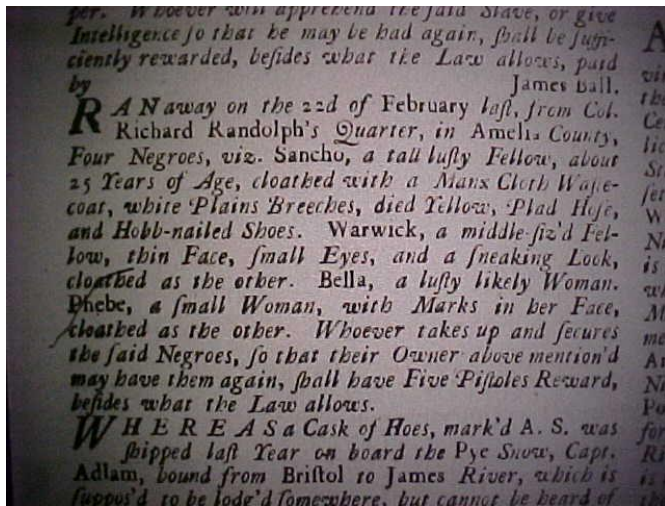 per. Whoever will apprehend the said Slave, or give
Intelligence so that he may be had again, ſhall be ſuffi-
ciently rewarded, beſides what the Law allows, paid
by James Ball.
RAN away on the 22d of February laſt, from Col.
Richard Randolph's Quarter, in Amelia County,
Four Negroes, viz. Sancho, a tall luſty Fellow, about
25 Years of Age, cloathed with a Manx Cloth Waſte-
coat, white Plains Breeches, died Yellow, Plad Hoſe,
and Hobb-nailed Shoes. Warwick, a middle-ſiz'd Fel-
low, thin Face, ſmall Eyes, and a ſneaking Look,
cloathed as the other. Bella, a luſty likely Woman.
Phebe, a ſmall Woman, with Marks in her Face,
cloathed as the other. Whoever takes up and ſecures
the ſaid Negroes, ſo that their Owner above mention'd
may have them again, ſhall have Five Piſtoles Reward,
beſides what the Law allows.
WHEREAS a Cask of Hoes, mark'd A. S. was
ſhipped laſt Year on board the Pye Snow, Capt.
Adlam, bound from Briſtol to James River, which is
ſuppos'd to be lodg'd ſomewhere, but cannot be heard of